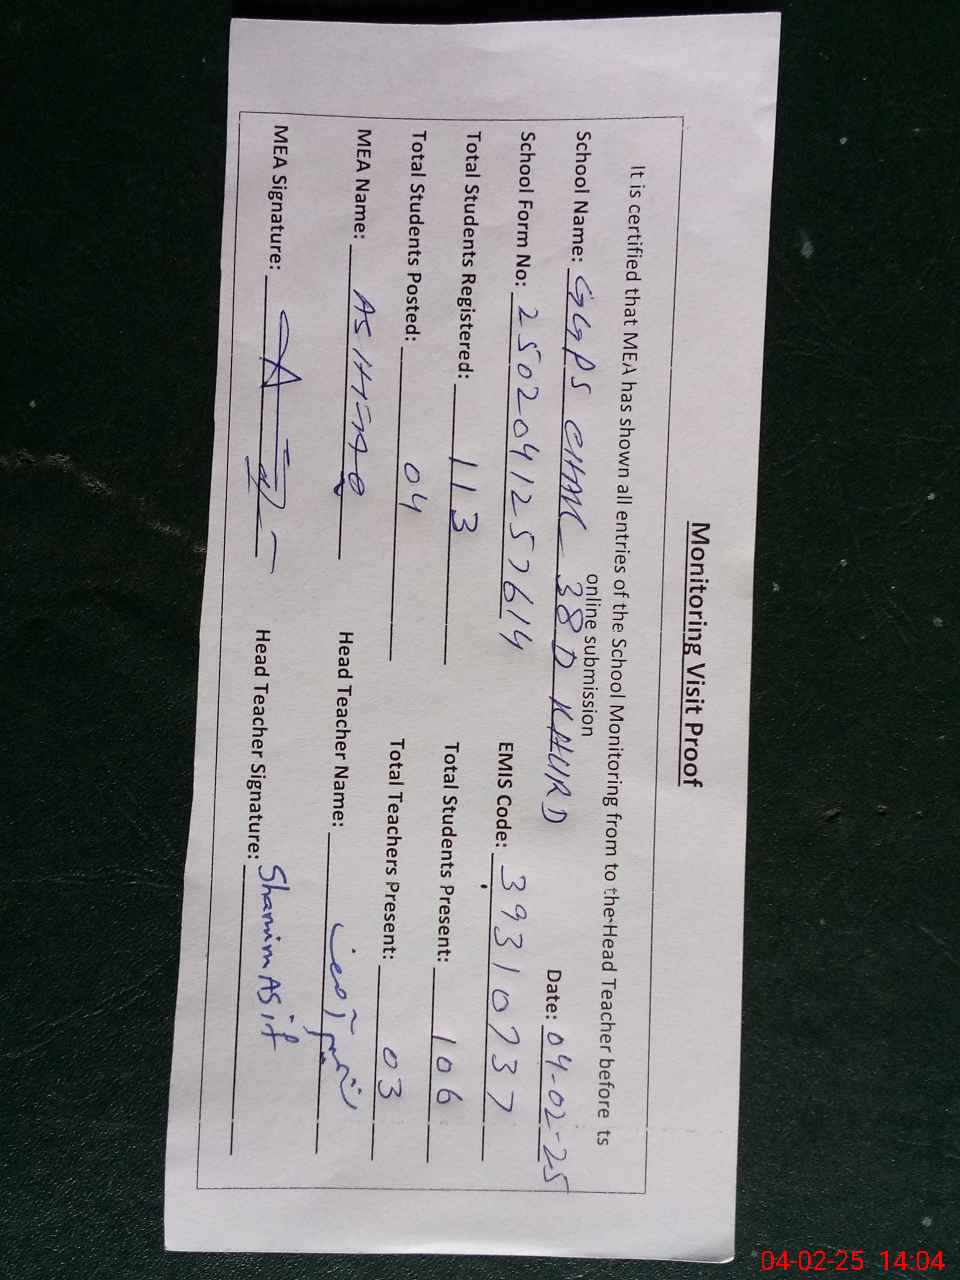 Monitoring Visit Proof
It is certified that MEA has shown all entries of the School Monitoring from to the Head Teacher before ts
online submission
School Name: GGPS CHAK 38 D KHURD Date: 04-02-25
School Form No: 2502041257614 EMIS Code: 39310737
Total Students Registered: 113 Total Students Present: 106
Total Students Posted: 04 Total Teachers Present: 03
MEA Name: Head Teacher Name: شمیم آصف
MEA Signature: Head Teacher Signature: Shamim ASif
04-02-25 14:04